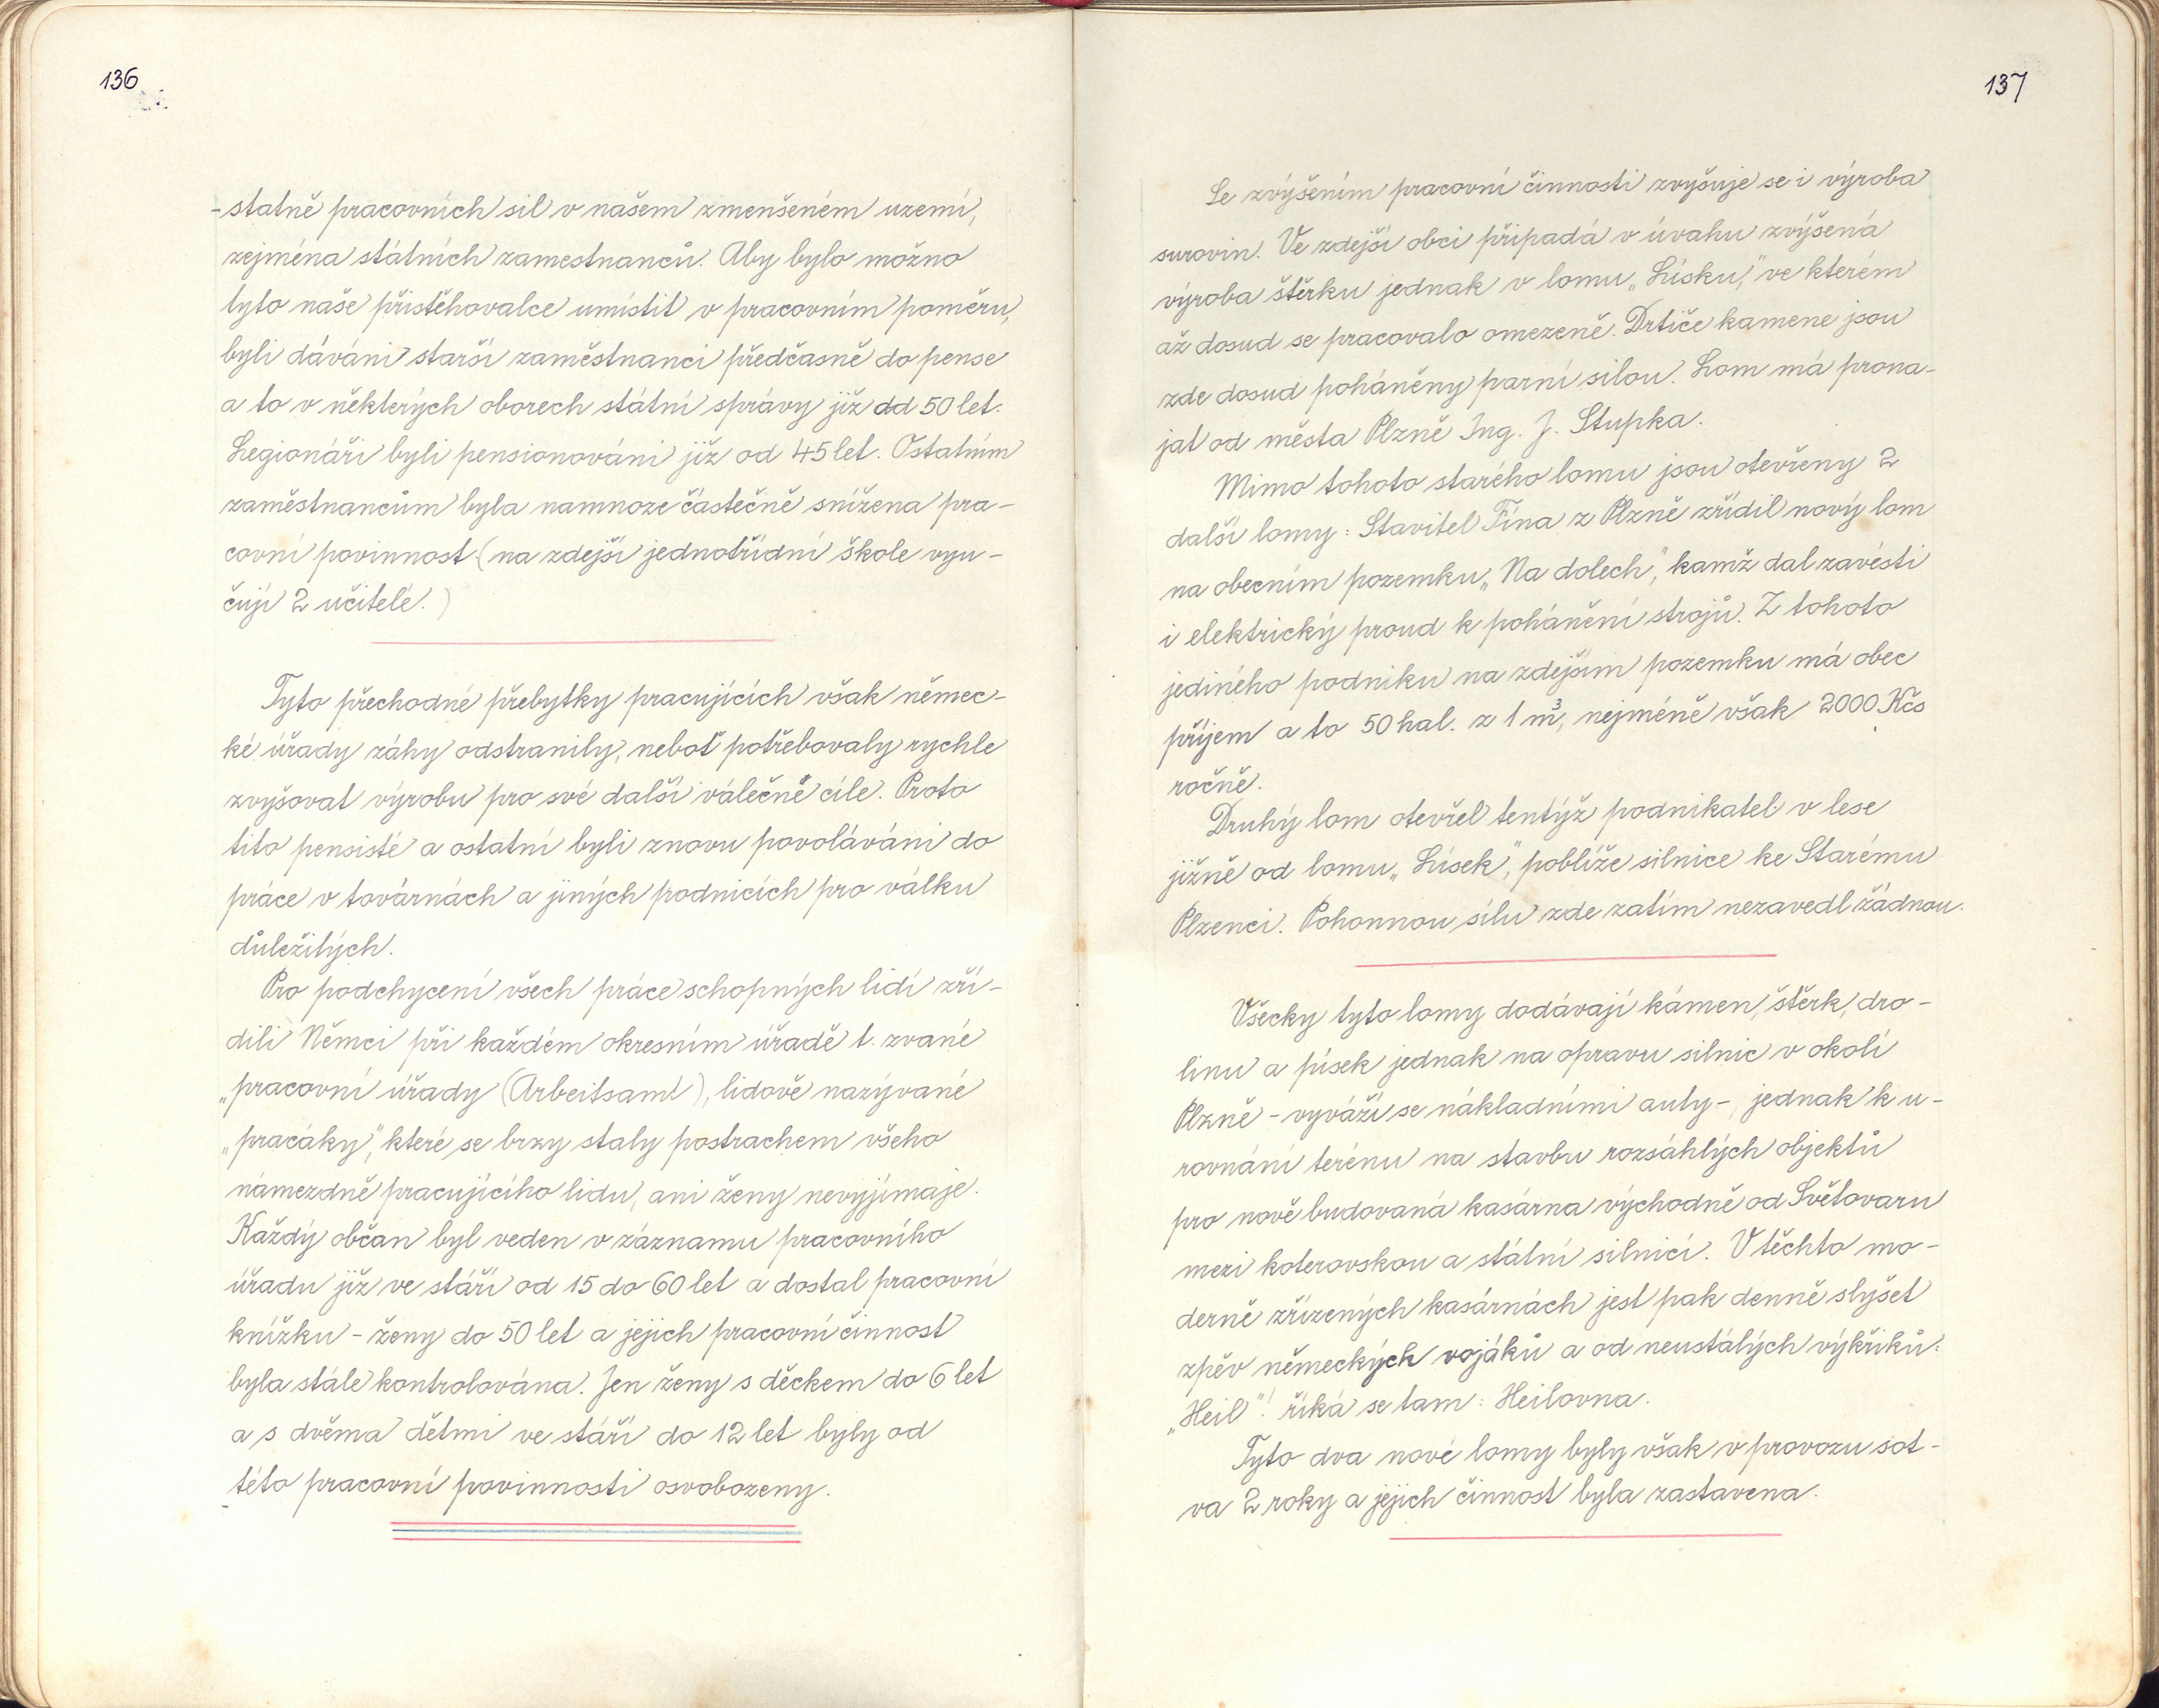 136
-statně pracovních sil v našem zmenšeném uzemí,
zejména státních zamestnanců. Aby bylo možno
tyto naše přistěhovalce umístit v pracovním poměru,
byli dáváni starší zaměstnanci předčasně do pense
a to v některých oborech státní správy již od 50 let.
Legionáři byli pensionováni již od 45 let. Ostatním
zaměstnancům byla namnoze částečně snížena pra-
covní povinnost (na zdejší jednotřídní škole vyu-
čují 2 učitelé.)
Tyto přechodné přebytky pracujících však němec-
ké úřady záhy odstranily, neboť potřebovaly rychle
zvyšovat výrobu pro své další válečné cíle. Proto
tito pensisté a ostatní byli znovu povoláváni do
práce v továrnách a jiných podnicích pro válku
důležitých.
Pro podchycení všech práce schopných lidí zří-
dili Němci při každém okresním úřadě t. zvané
„pracovní úřady (Arbeitsamt), lidově nazývané
„pracáky", které se brzy staly postrachem všeho
námezdně pracujícího lidu, ani ženy nevyjímaje.
Každý občan byl veden v záznamu pracovního
úřadu již ve stáří od 15 do 60 let a dostal pracovní
knížku - ženy do 50 let a jejich pracovní činnost
byla stále kontrolována. Jen ženy s děckem do 6 let
a s dvěma dětmi ve stáří do 12 let byly od
této pracovní povinnosti osvobozeny.
137
Se zvýšením pracovní činnosti zvyšuje se i výroba
surovin. Ve zdejší obci připadá v úvahu zvýšená
výroba štěrku jednak v lomu „Lísku", ve kterém
až dosud se pracovalo omezeně. Drtiče kamene jsou
zde dosud poháněny parní silou. Lom má prona-
jat od města Plzně Ing. J. Stupka.
Mimo tohoto starého lomu jsou otevřeny 2
další lomy: Stavitel Fína z Plzně zřídil nový lom
na obecním pozemku „Na dolech", kamž dal zavésti
i elektrický proud k pohánění strojů. Z tohoto
jediného podniku na zdejším pozemku má obec
příjem a to 50 hal. z 1 m³, nejméně však 2000 Kčs
ročně.
Druhý lom otevřel tentýž podnikatel v lese
jižně od lomu „Lísek", poblíže silnice ke Starému
Plzenci. Pohonnou sílu zde zatím nezavedl žádnou.
Všecky tyto lomy dodávají kámen, štěrk, dro-
linu a písek jednak na opravu silnic v okolí
Plzně - vyváží se nákladními auty -, jednak k u-
rovnání terénu na stavbu rozsáhlých objektů
pro nově budovaná kasárna východně od Světovaru
mezi koterovskou a státní silnicí. V těchto mo-
derně zřízených kasárnách jest pak denně slyšet
zpěv německých vojáků a od neustálých výkřiků:
„Heil"! říká se tam: Heilovna.
Tyto dva nové lomy byly však v provozu sot-
va 2 roky a jejich činnost byla zastavena.